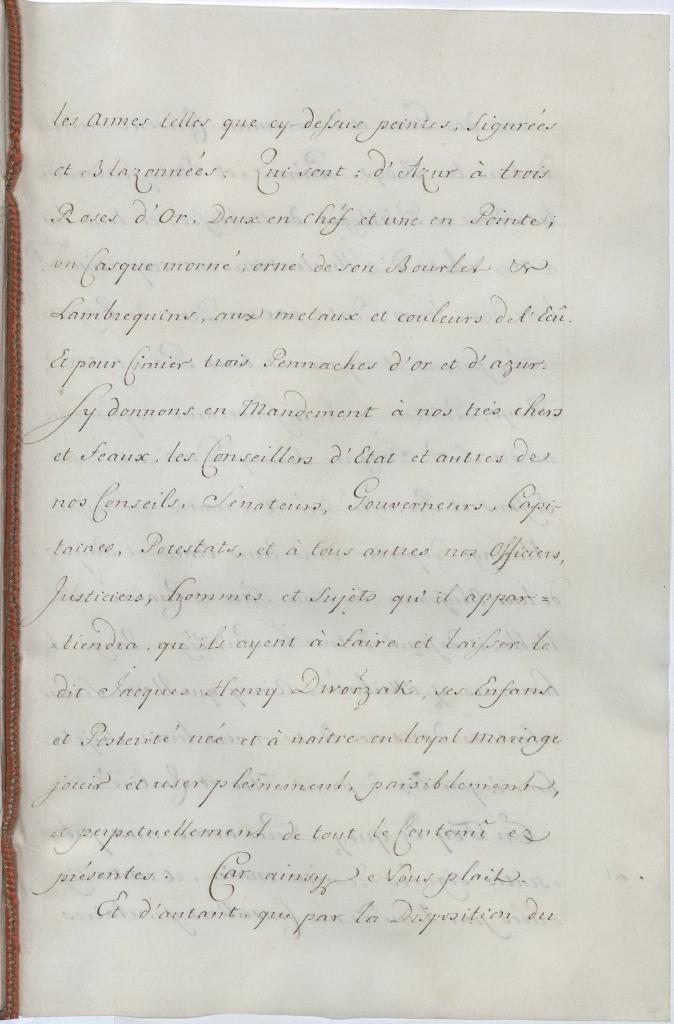 les Armes telles que cy-dessus peintes, figurées
et Blazonnées: Qui sont: d'Azur à trois
Roses d'Or, Deux en chéf et une en Pointe;
un Casque morné, orné de son Bourlet &
Lambrequins, aux metaux et couleurs de l'Ecû.
Et pour Cimier trois Pennaches d'or et d'azur.
Sy donnons en Mandement à nos trés chers
et feaux, les Conseillers d'Etat et autres de
nos Conseils, Senateurs, Gouverneurs, Capi-
taines, Potestats, et à tous autres nos Officiers,
Justiciers, hommes et Sujets qu'il appar=
=tiendra, qu'ils ayent à faire et laisser le
dit Jacques Henry Dworžak, ses Enfans
et Posterité née et à naitre en loyal mariage
jouir et user pleinement, paisiblement,
et perpetuellement de tout le Contenû ez
présentes: Car ainsy Nous plait.
Et d'autant que par la Disposition du